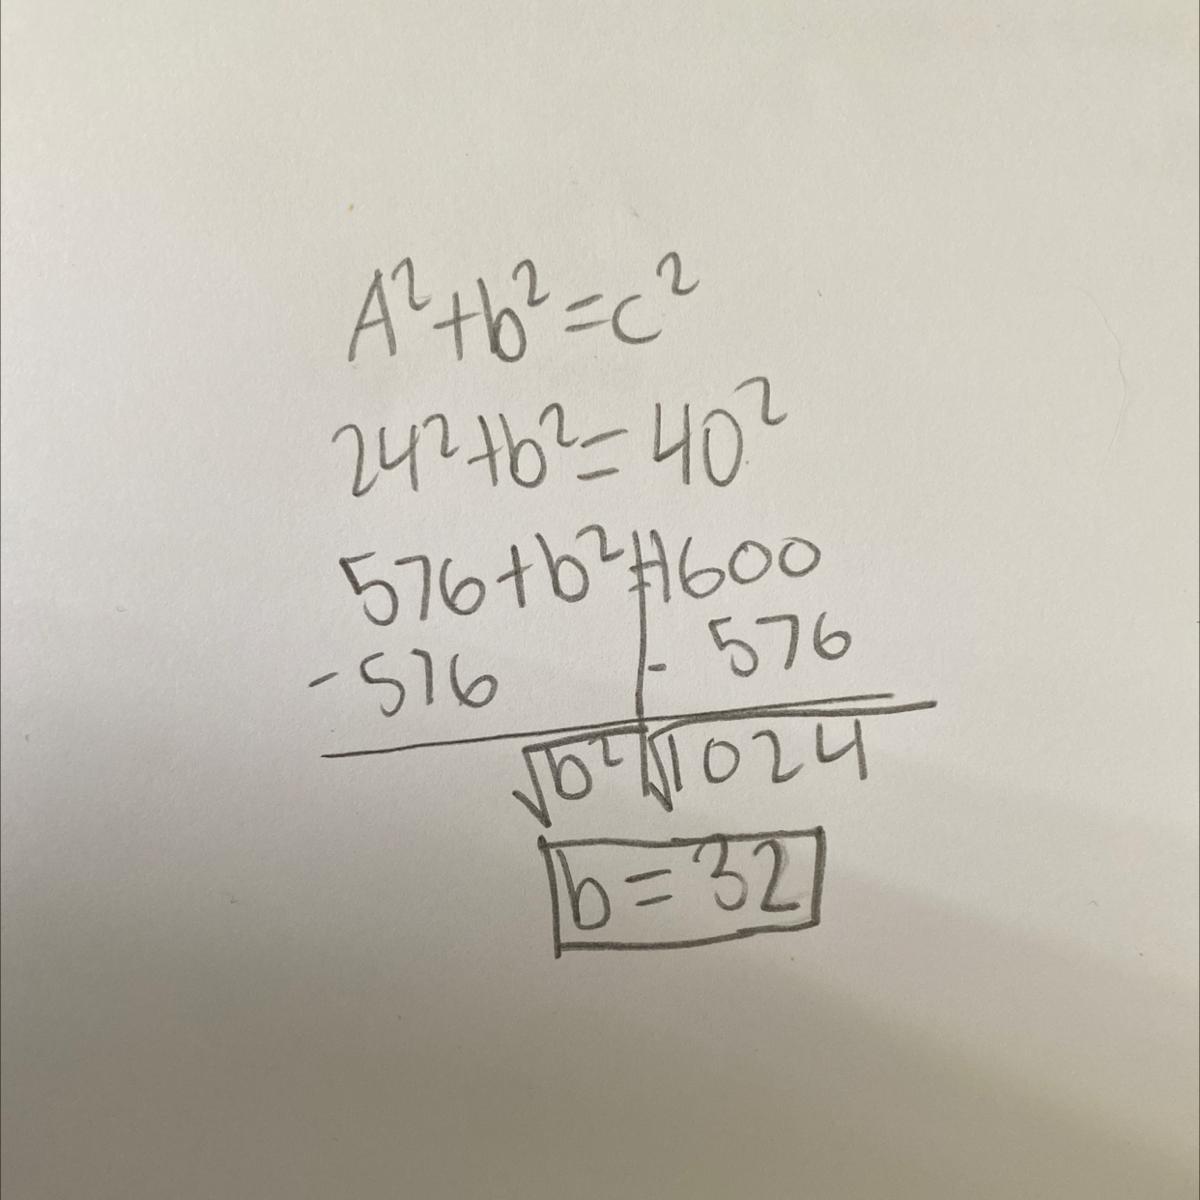 A²+b²=c²
24²+b²=40²
576+b²=1600
-576 - 576
√b² √1024
b=32